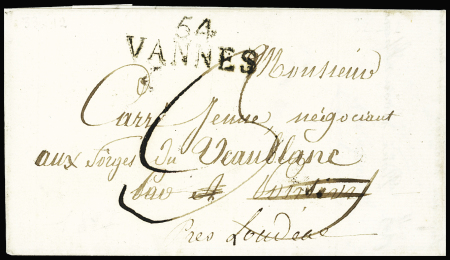 54
VANNES
Monsieur
Carré Jeune négociant
aux forges du Vaublanc
par et
Près Loudéac